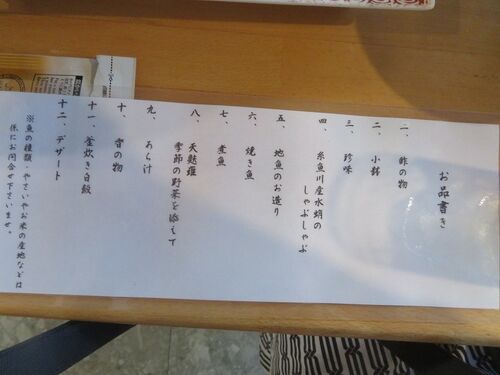 お品書き
一、酢の物
二、小鉢
三、珍味
四、糸魚川産水蛸の
しゃぶしゃぶ
五、地魚のお造り
六、焼き魚
七、煮魚
八、天麩羅
季節の野菜を添えて
九、あら汁
十、香の物
十一、釜炊き白飯
十二、デザート
※魚の種類・やさいやお米の産地などは
係にお問合せ下さいませ。